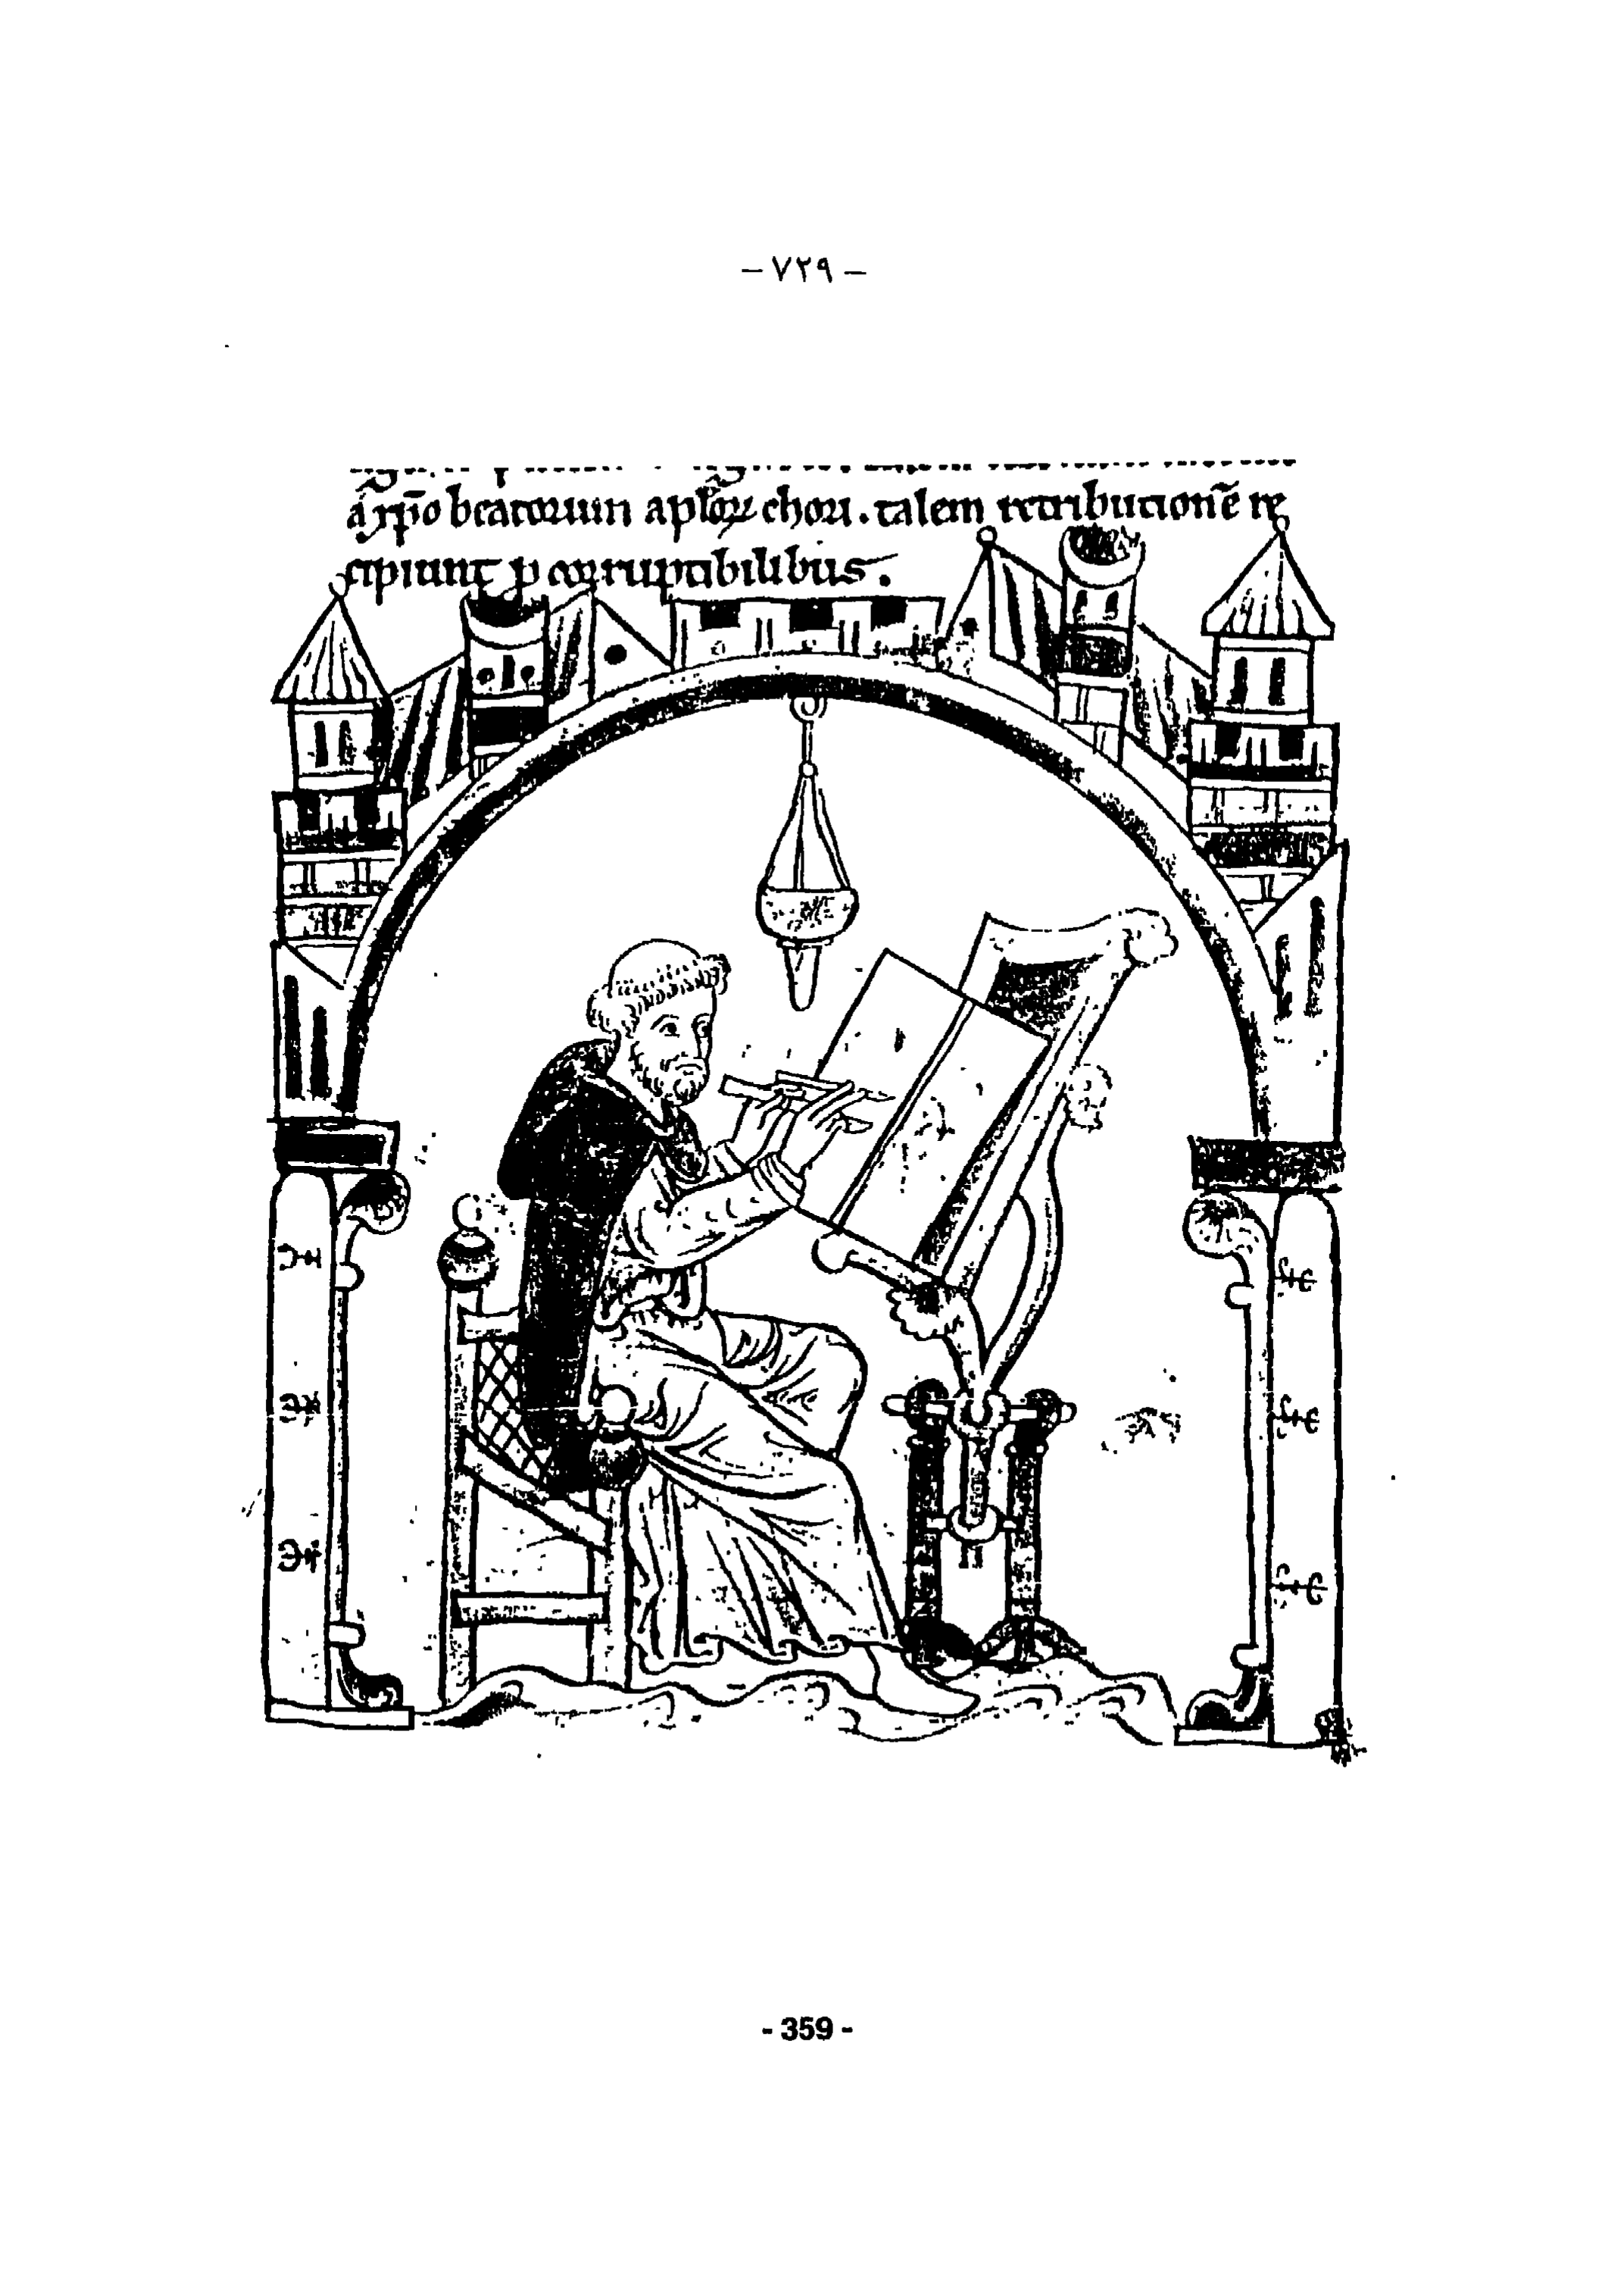 – ٧٢٩ –
a xp̄o beatorum aploꝝ chori. talem retributionē re
cipiunt p corruptibilibus.
- 359 -